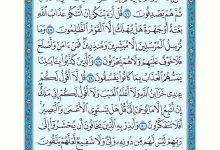 ثُمَّ هُمْ يَصْدِفُونَ ۝ قُلْ أَرَءَيْتَكُمْ إِنْ أَتَىٰكُمْ عَذَابُ ٱللَّهِ
بَغْتَةً أَوْ جَهْرَةً هَلْ يُهْلَكُ إِلَّا ٱلْقَوْمُ ٱلظَّٰلِمُونَ ۝ وَمَا
نُرْسِلُ ٱلْمُرْسَلِينَ إِلَّا مُبَشِّرِينَ وَمُنذِرِينَ فَمَنْ ءَامَنَ وَأَصْلَحَ
فَلَا خَوْفٌ عَلَيْهِمْ وَلَا هُمْ يَحْزَنُونَ ۝ وَٱلَّذِينَ كَذَّبُوا۟ بِـَٔايَٰتِنَا
يَمَسُّهُمُ ٱلْعَذَابُ بِمَا كَانُوا۟ يَفْسُقُونَ ۝ قُل لَّآ أَقُولُ لَكُمْ
عِندِى خَزَآئِنُ ٱللَّهِ وَلَآ أَعْلَمُ ٱلْغَيْبَ وَلَآ أَقُولُ لَكُمْ إِنِّى
مَلَكٌ إِنْ أَتَّبِعُ إِلَّا مَا يُوحَىٰٓ إِلَىَّ قُلْ هَلْ يَسْتَوِى ٱلْأَعْمَىٰ وَٱلْبَصِيرُ
أَفَلَا تَتَفَكَّرُونَ ۝ وَأَنذِرْ بِهِ ٱلَّذِينَ يَخَافُونَ أَن يُحْشَرُوٓا۟ إِلَىٰ
رَبِّهِمْ لَيْسَ لَهُم مِّن دُونِهِۦ وَلِىٌّ وَلَا شَفِيعٌ لَّعَلَّهُمْ يَتَّقُونَ